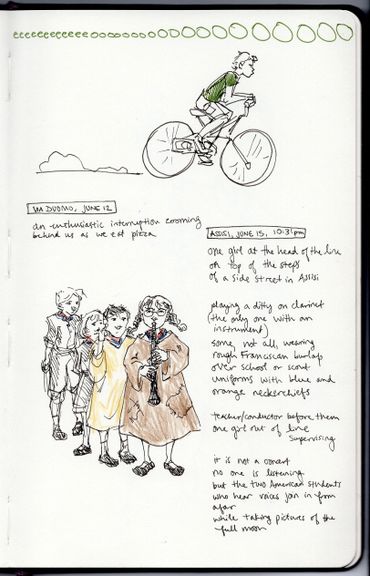 VIA DUOMO, JUNE 12
an enthusiastic interruption zooming
behind us as we eat pizza
ASSISI, JUNE 15, 10:31pm
one girl at the head of the line
on top of the steps
of a side street in Assisi
playing a ditty on clarinet
(the only one with an
instrument)
some, not all, wearing
rough Franciscan burlap
over school or scout
uniforms with blue and
orange neckerchiefs
teacher/conductor before them
one girl out of line
supervising
it is not a concert
no one is listening
but the two American students
who hear voices join in from
afar
while taking pictures of the
full moon